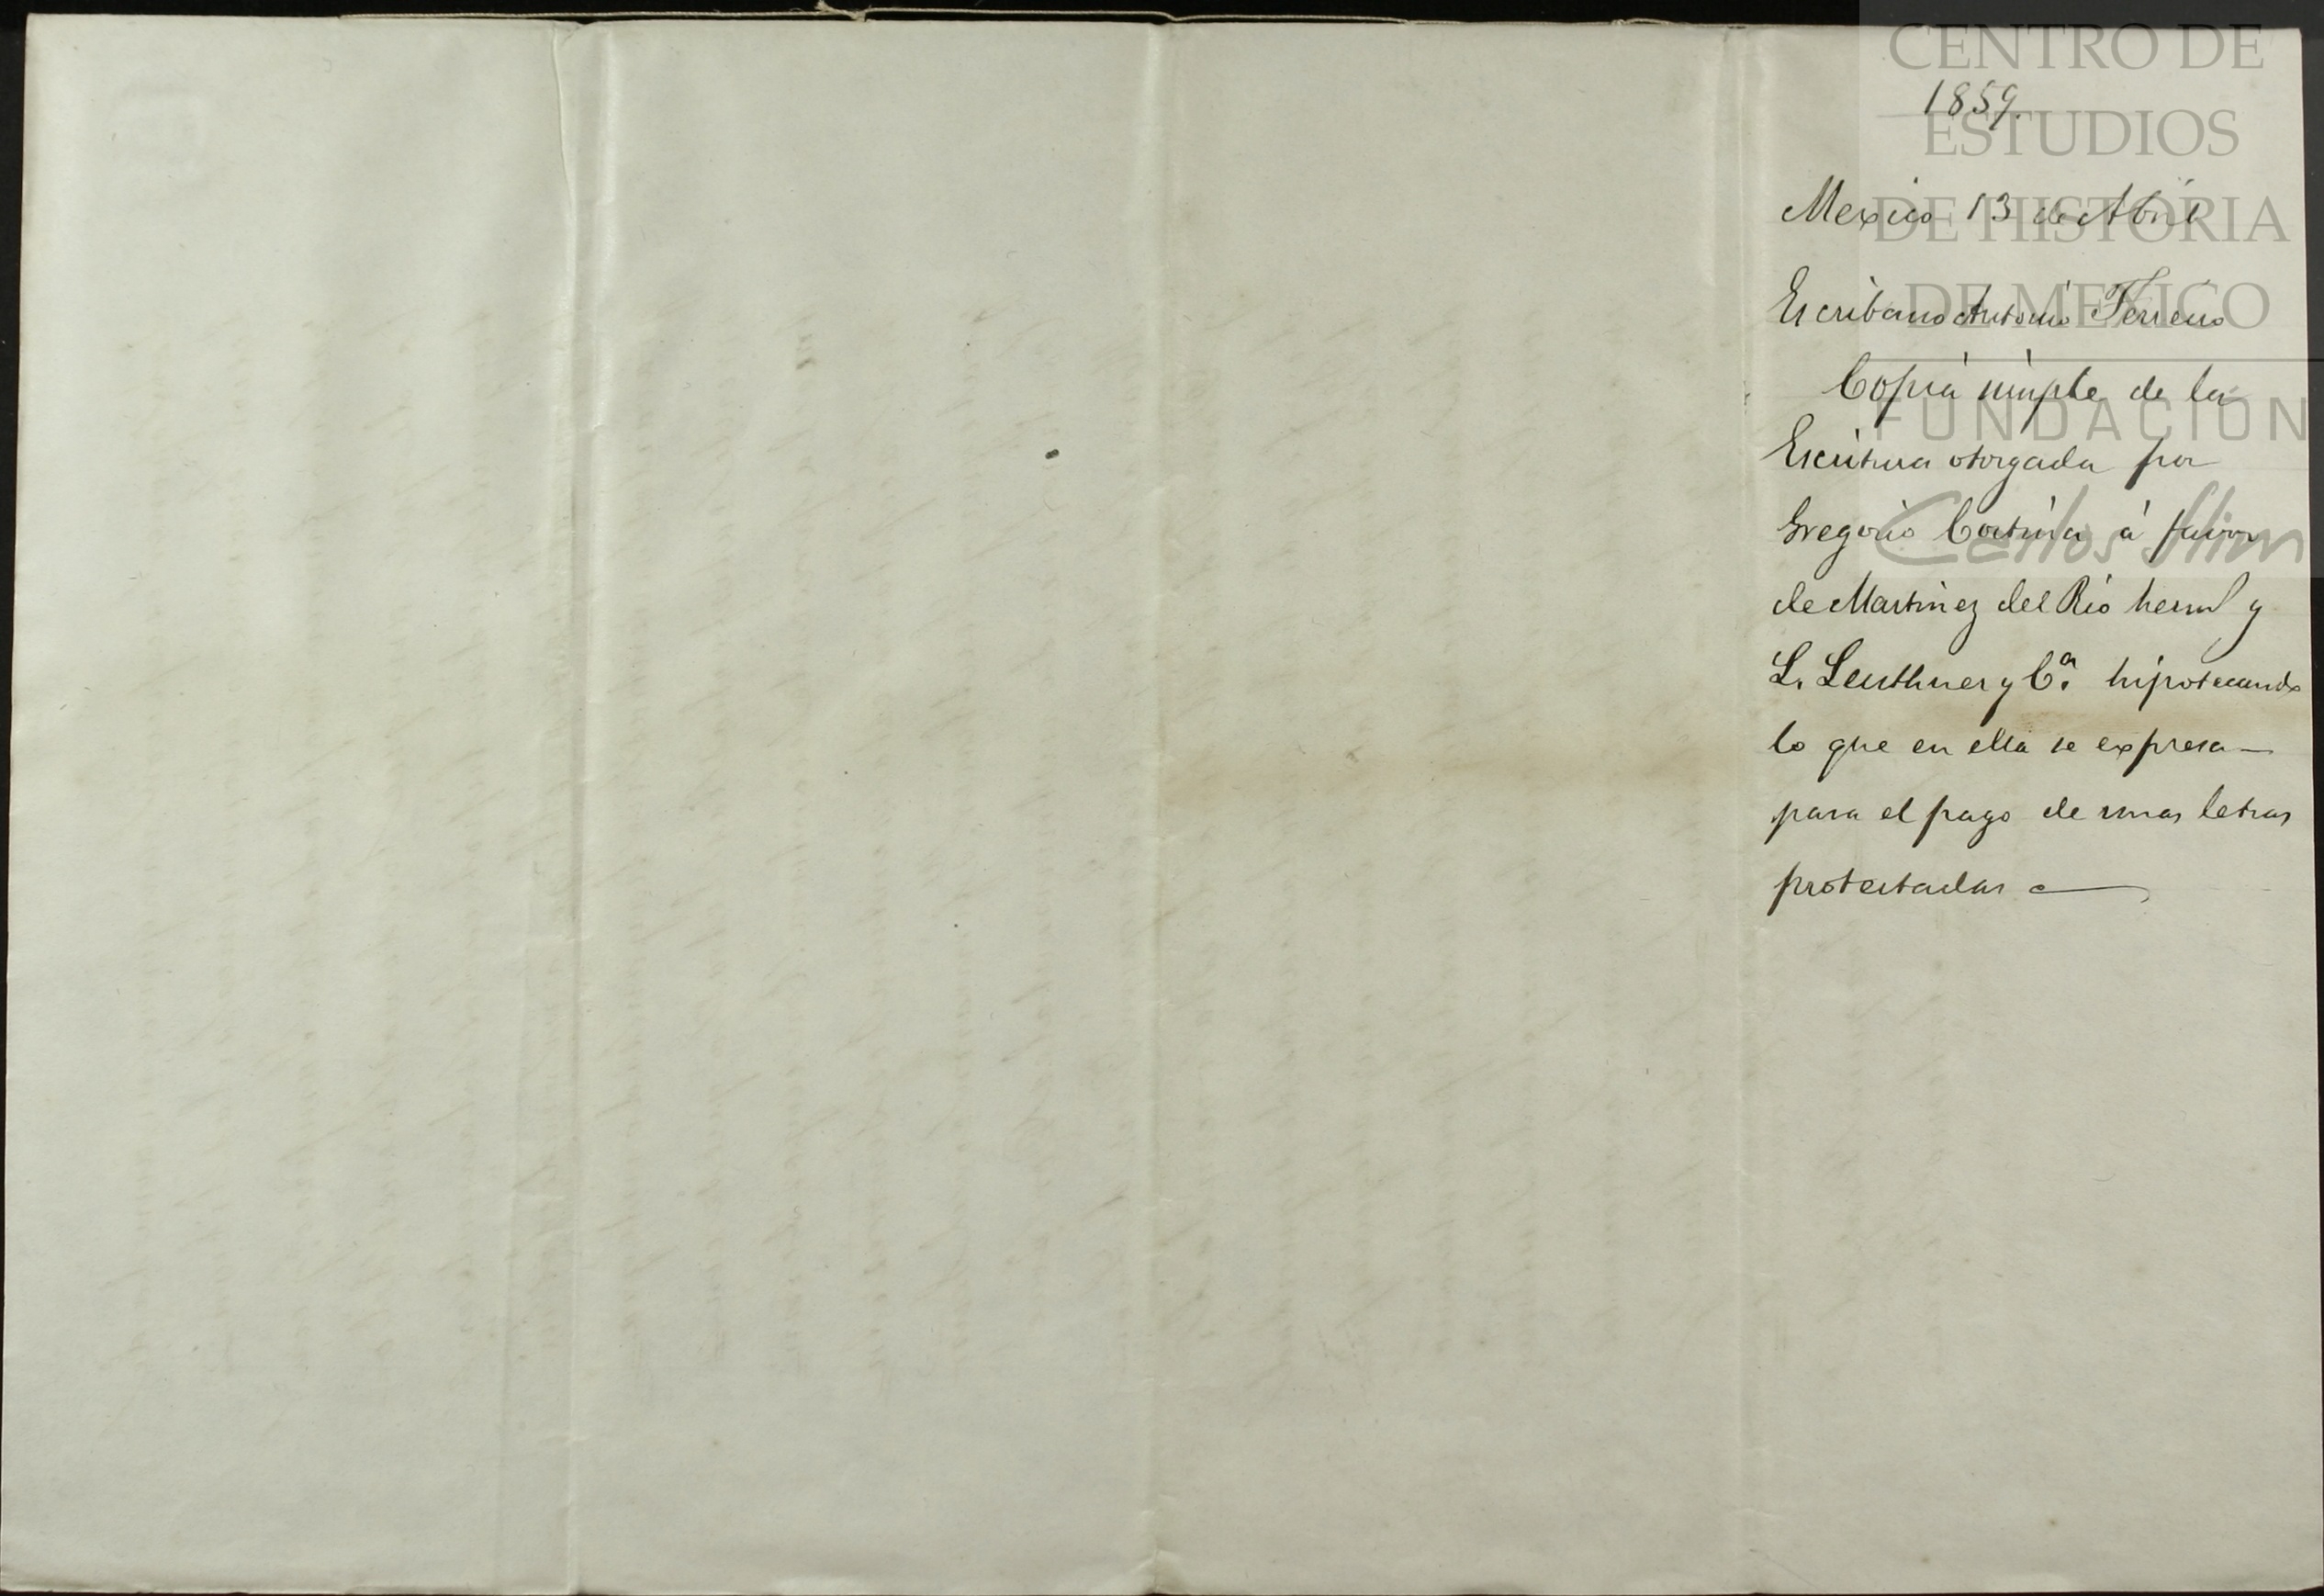 CENTRO DE
1859.
ESTUDIOS
Mexico 13 de Abril
DE HISTORIA
DE MEXICO
Escribano Antonio Ferreiro
Copia simple de la
FUNDACION
Escritura otorgada por
Gregorio Cortina á favor
Carlos Slim
de Martinez del Rio herms y
L. Leuthner y Cª. hipotecando
lo que en ella se expresa
para el pago de unas letras
protestadas